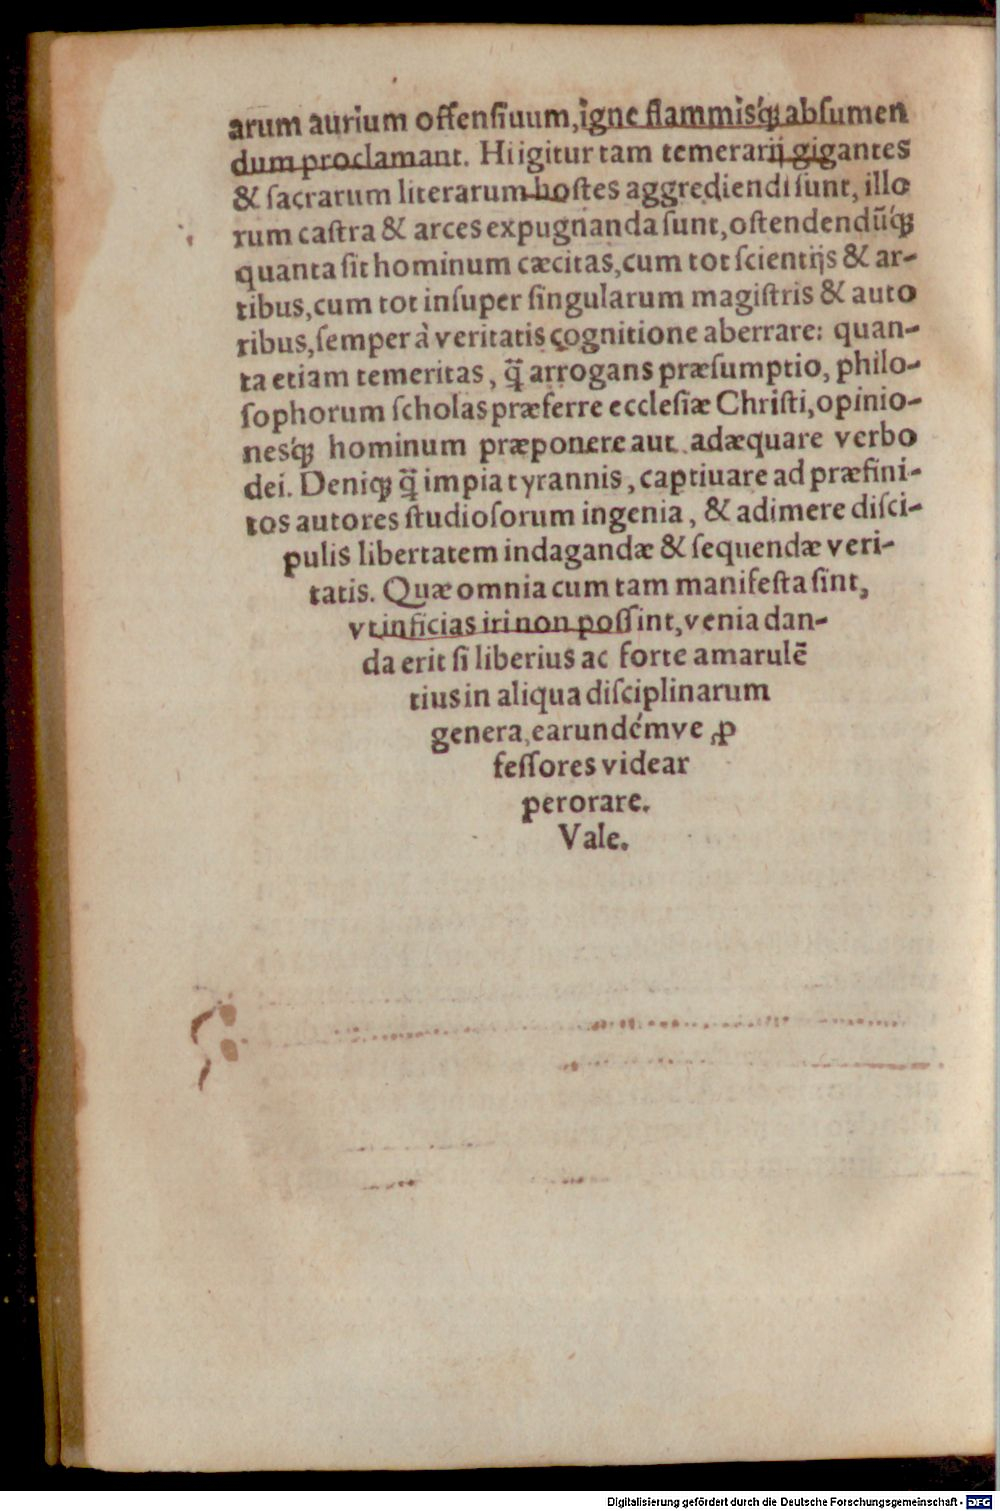 arum aurium offensiuum, igne flammisq́ꝫ absumen
dum proclamant. Hi igitur tam temerarij gigantes
& sacrarum literarum hostes aggrediendi sunt, illo
rum castra & arces expugnanda sunt, ostendendūq́ꝫ
quanta sit hominum cæcitas, cum tot scientijs & ar-
tibus, cum tot insuper singularum magistris & auto
ribus, semper à veritatis cognitione aberrare: quan-
ta etiam temeritas, q̃ arrogans præsumptio, philo-
sophorum scholas præferre ecclesiæ Christi, opinio-
nesq́ꝫ hominum præponere aut adæquare verbo
dei. Deniqꝫ q̃ impia tyrannis, captiuare ad præfini-
tos autores studiosorum ingenia, & adimere disci-
pulis libertatem indagandæ & sequendæ veri-
tatis. Quæ omnia cum tam manifesta sint,
vt inficias iri non possint, venia dan-
da erit si liberius ac forte amarulē
tius in aliqua disciplinarum
genera, earundémve ꝓ
fessores videar
perorare.
Vale.
Digitalisierung gefördert durch die Deutsche Forschungsgemeinschaft - DFG